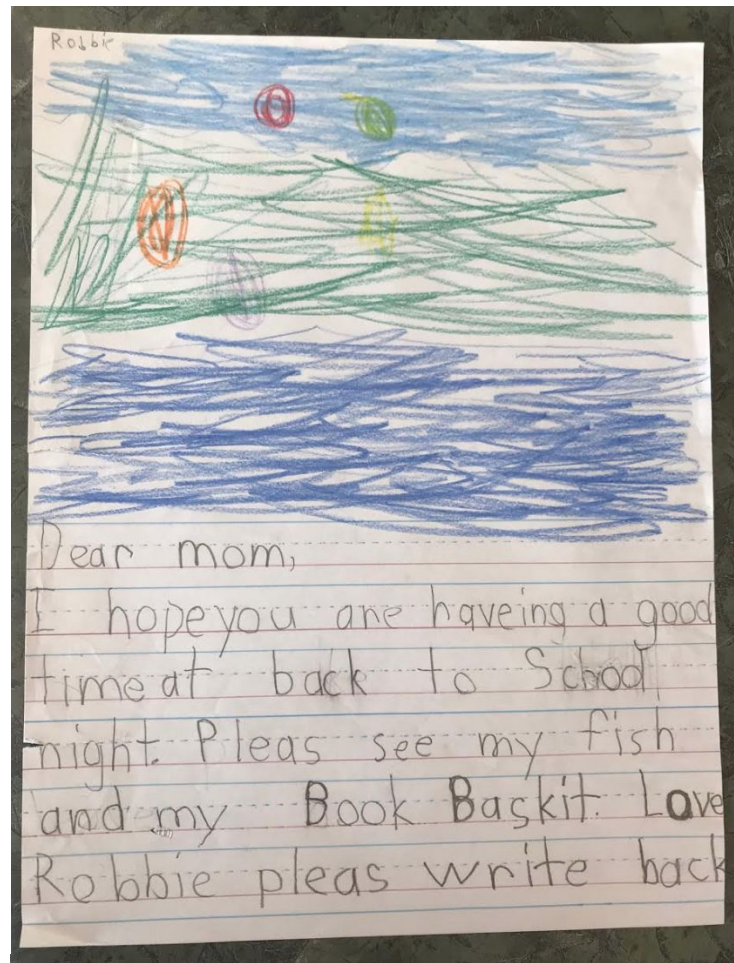 Robbie
Dear mom,
I hope you are haveing a good
time at back to School
night. Pleas see my fish
and my Book Baskit. Love
Robbie pleas write back